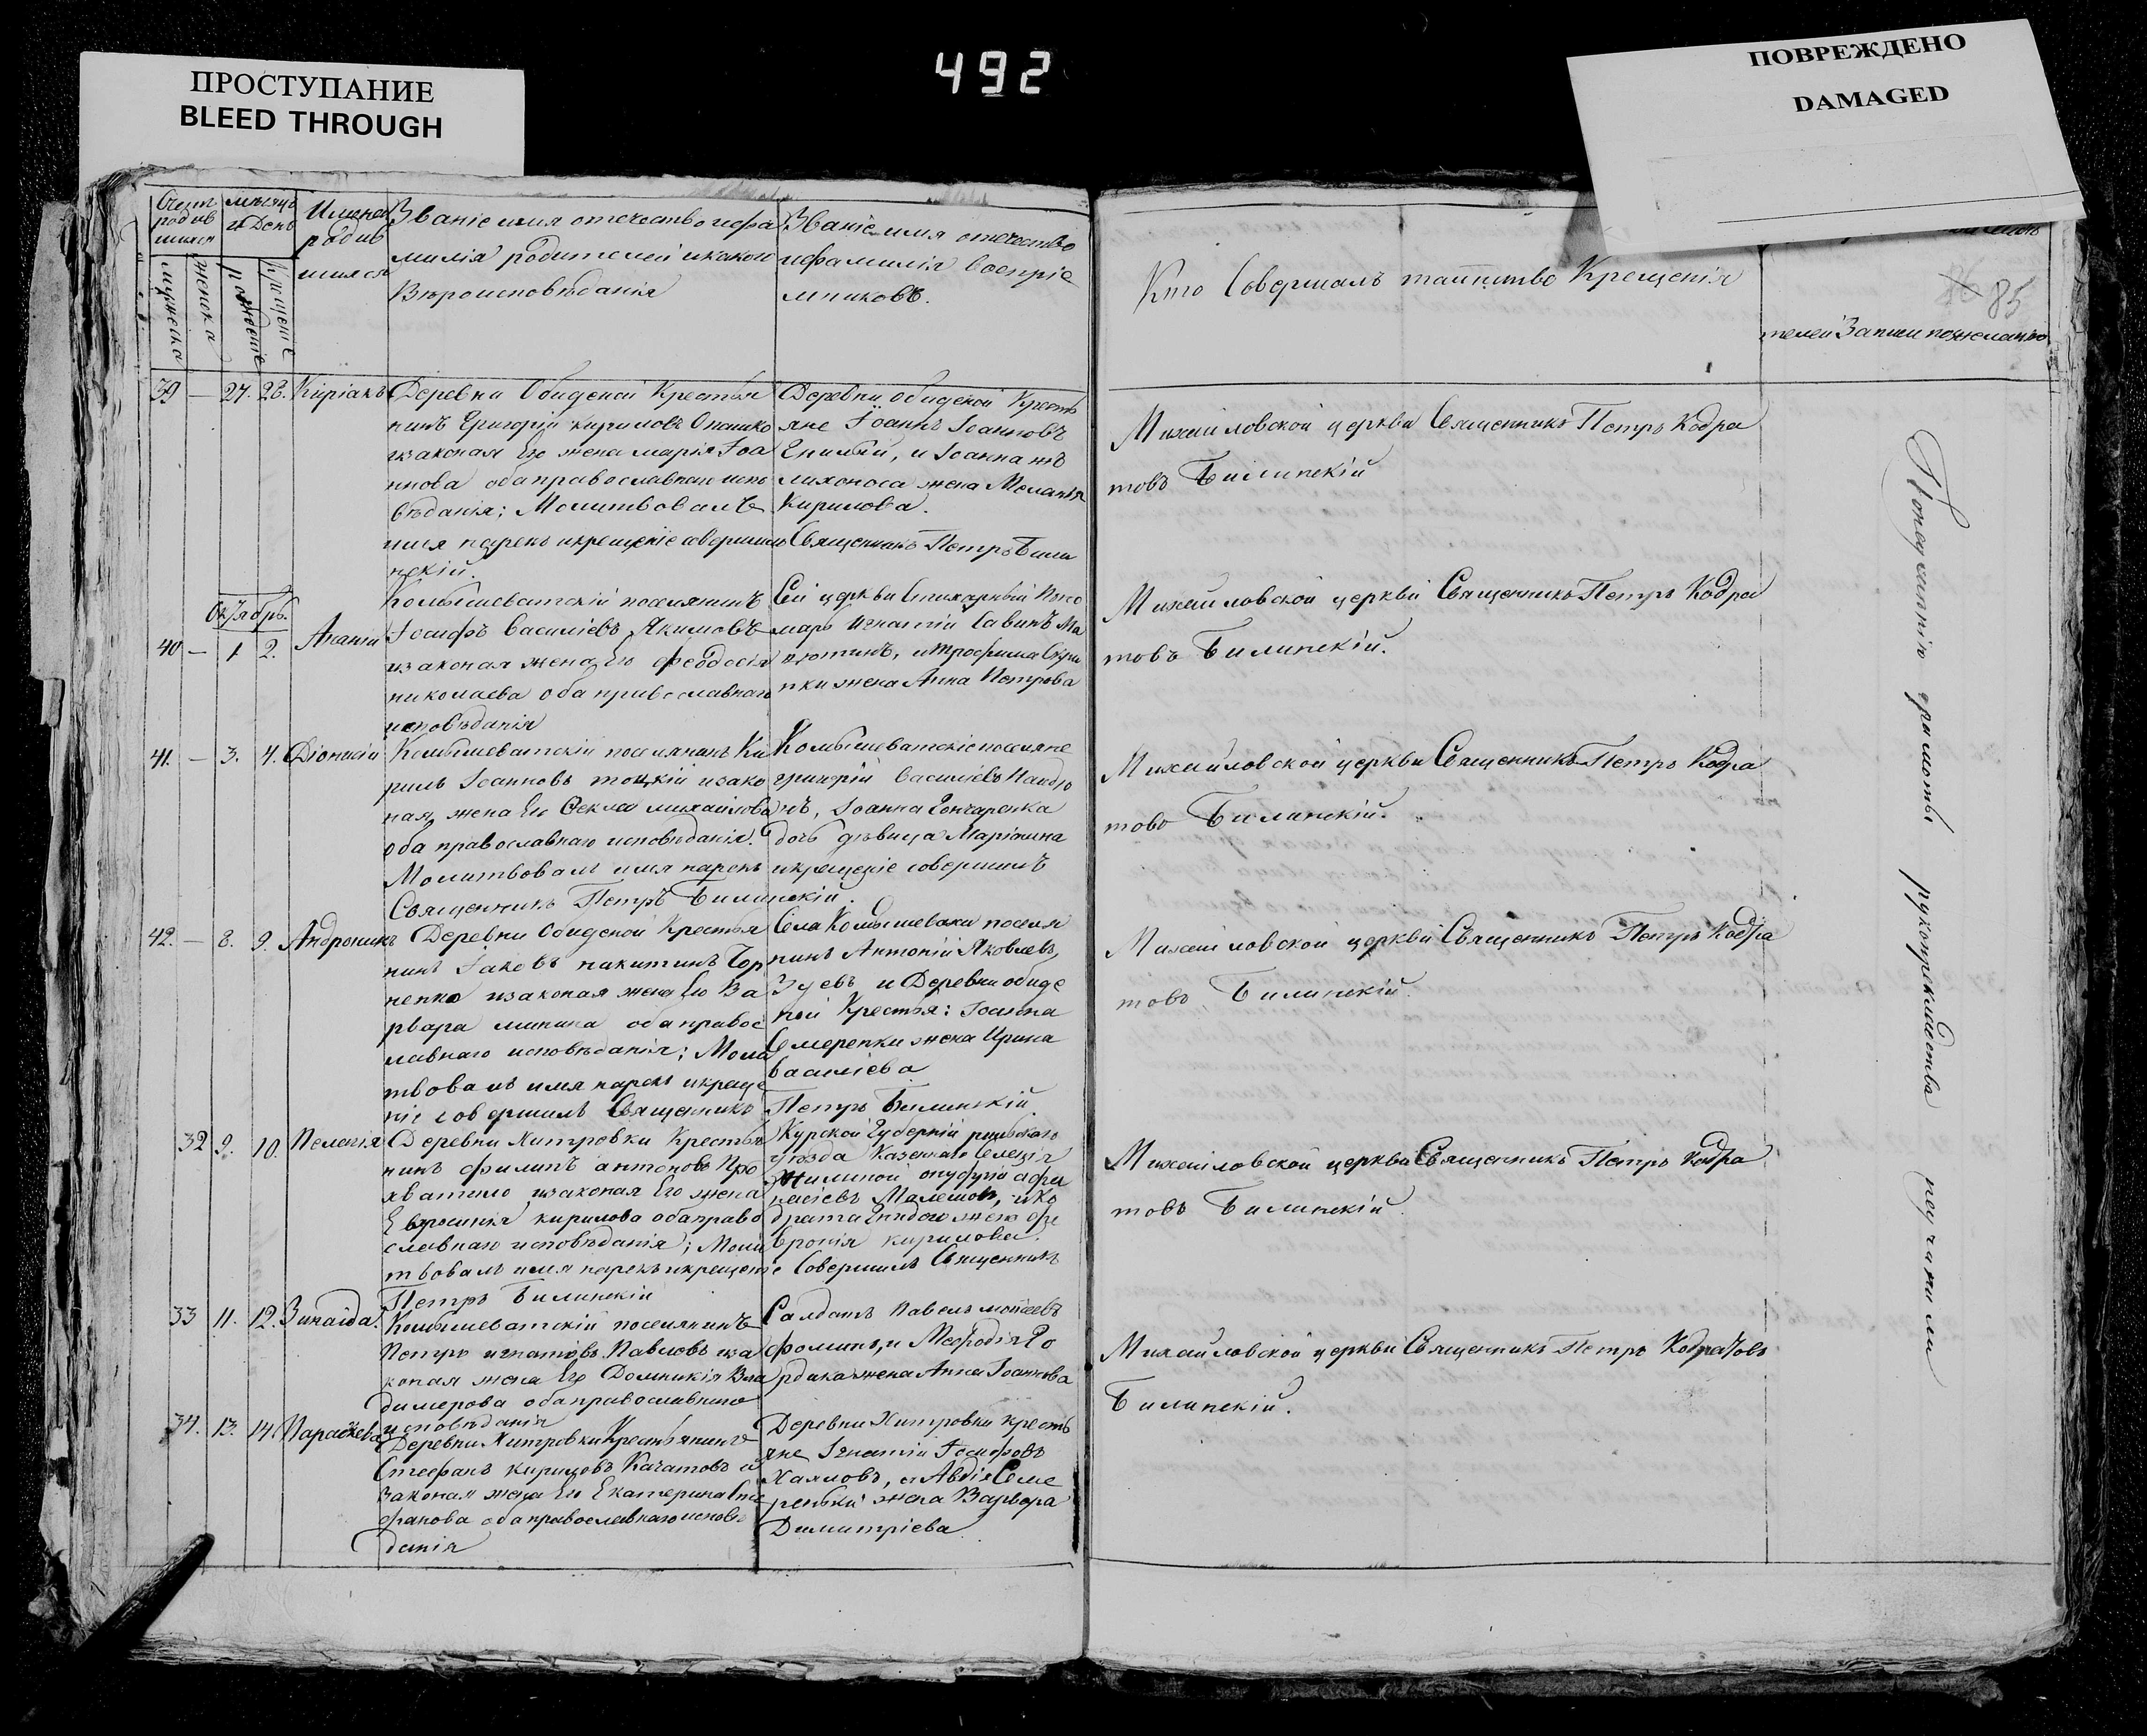 492
ПРОСТУПАНИЕ
BLEED THROUGH
ПОВРЕЖДЕНО
DAMAGED
Счетъ родив шихся
мужеска
женска
мѣсяцъ и День
рожденіе
крещеніе
Имена родив шихся
Званіе имя отечество и фа
милія родителей и какого
Вѣроисповѣданія
Званіе имя отечество
и фамилія воспріе
мниковъ.
Кто Совершалъ таинство Крещенія
85
телей Записи по желанію
39 — 27. 28. Киріакъ
Деревни Обидной Крестья
нинъ Григорій Кириловъ
законая Его жена Марія Іоа
ннова оба православнаго испо
вѣданія; Молитвовалъ
имя нарекъ и крещеніе совершилъ Священникъ Петръ Били
нскій.
Деревни Обидной Кресть
яне Іоаннъ Іоанновъ
и Іоанна
жена Меланія
Кирилова.
Михайловской церкви Священникъ Петръ Кодра
товъ Билинскій
Октябрь.
40 — 1 2. Ананій
Комышеватскій поселянинъ
Іосифъ Василіевъ Якимовъ
и законая жена Его Феодосія
Николаева оба православнаго
исповѣданія
Сей церкви Стихарный Поно
марь Игнатій Савинъ Ма
и Трофима Скри
пки жена Анна Петрова
Михайловской церкви Священникъ Петръ Кодра
товъ Билинскій.
41. — 3. 4. Діонисій
Комышеватскій поселянинъ Ки
рилъ Іоанновъ тоцкій и зако
ная жена Его Фекла Михайлова
оба православнаго исповѣданія.
Молитвовалъ имя нарекъ и крещеніе совершилъ
Священникъ Петръ Билинскій.
Комышеватскіе поселяне
Григорій Василіевъ
Іоанна Гончаренка
дочь дѣвица Маріанна
Михайловской церкви Священникъ Петръ Кодра
товъ Билинскій.
42. — 8. 9. Андроникъ
Деревни Обидной Крестья
нинъ Іаковъ Никитинъ Чор
ненко и законая жена Его Ва
рвара Минина оба правос
лавнаго исповѣданія; Моли
твовалъ имя нарекъ и креще
ніе совершилъ Священникъ Петръ Билинскій.
Села Комышевахи поселя
нинъ Антоній Яковлевъ
Зуевъ и Деревни Обиде
ной Крестья: Іоанна
Семеренки жена Ирина
Василіева
Михайловской церкви Священникъ Петръ Кодра
товъ Билинскій.
32 9. 10. Пелагія
Деревни Хитровки Крестья
нинъ Филипъ Антоновъ Про
хватило и законая Его жена
Евфросинія Кирилова оба право
славнаго исповѣданія; Моли
твовалъ имя нарекъ и крещеніе Совершилъ Священникъ
Петръ Билинскій
Курской Губерніи рыльскаго
уѣзда Казеннаго Селенія
Онуфрій Афа
насіевъ и Ко
драта жена Фе
вронія Кирилова.
Михайловской церкви Священникъ Петръ Кодра
товъ Билинскій.
33 11. 12. Зинаіда.
Комышеватскій поселянинъ
Петръ Игнатовъ Павловъ и за
коная жена Его Домникія Вла
димерова оба православнаго
исповѣданія
Салдатъ Павелъ Моисеевъ
Фоминъ, и Мефодія Го
рдака жена Анна Іоаннова
Михайловской церкви Священникъ Петръ Кодратовъ
Билинскій.
34. 13. 14. Параскева
Деревни Хитровки Крестьянинъ
Стефанъ Кириловъ Качатовъ и
законая жена Его Екатерина Сте
фанова оба православнаго исповѣ
данія
Деревни Хитровки Кресть
яне Игнатій Іосифовъ
Халловъ, и Авдія Семе
реньки жена Варвара
Димитріева.
По неумѣнію грамоты рукоприкладства неучинили